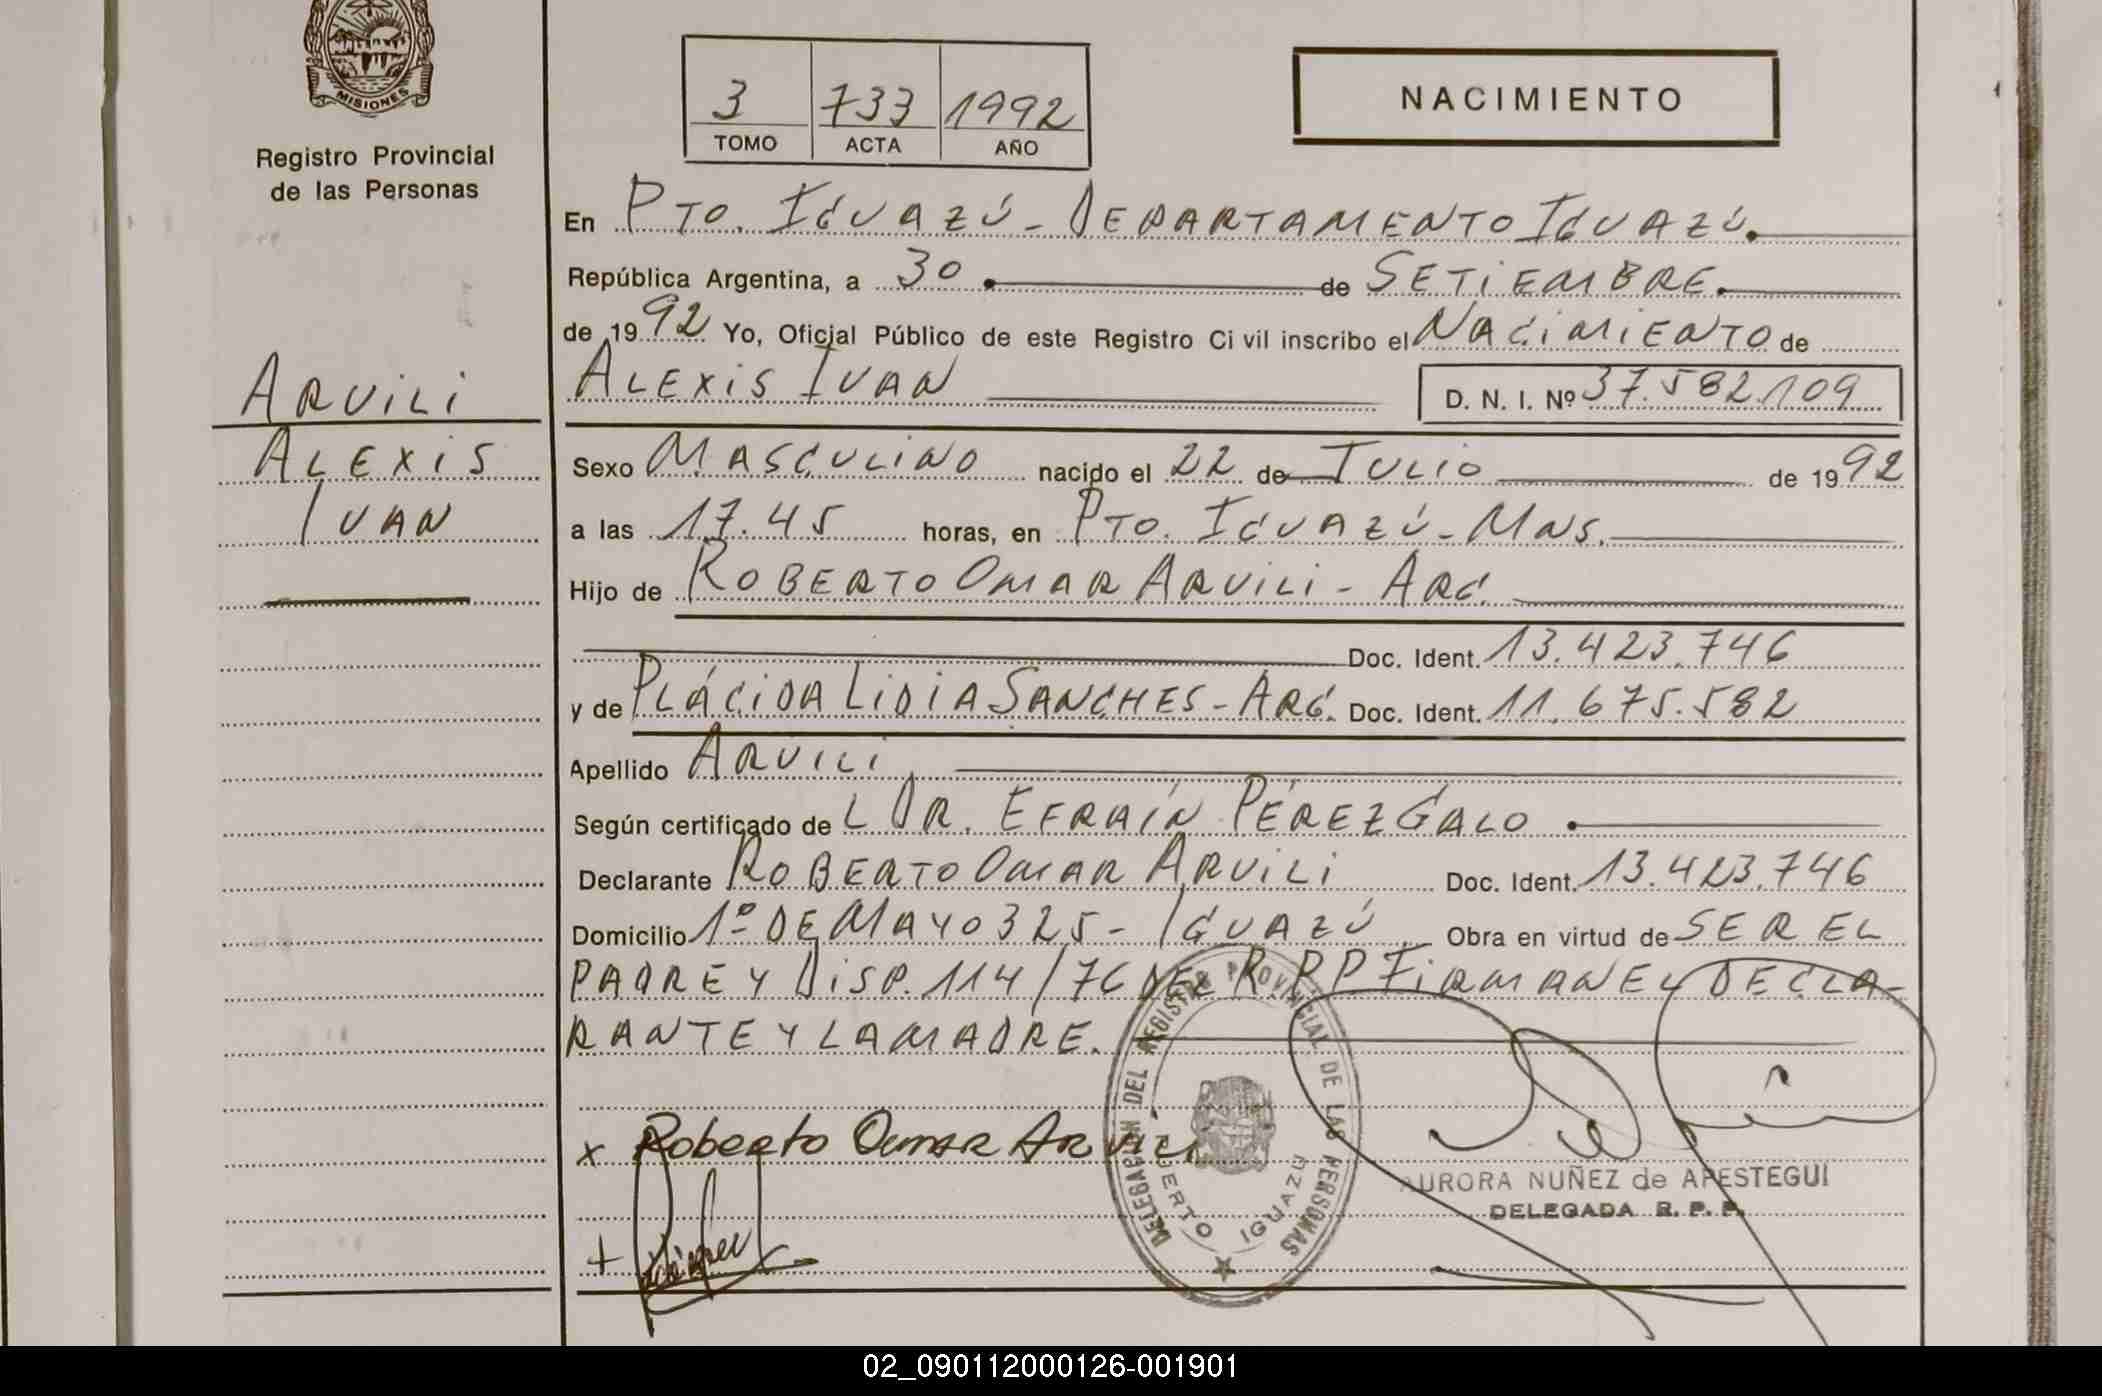 MISIONES
Registro Provincial
de las Personas
3 733 1992
TOMO ACTA AÑO
NACIMIENTO
En PTO. IGUAZÚ - DEPARTAMENTO IGUAZÚ.
República Argentina, a 30 de SETIEMBRE.
de 1992 Yo, Oficial Público de este Registro Ci vil inscribo el NACIMIENTO de
ALEXIS IVAN D. N. I. Nº 37.582.109
ARVILI
ALEXIS
IVAN
Sexo MASCULINO nacido el 22 de JULIO de 1992
a las 17.45 horas, en PTO. IGUAZÚ - MNS.
Hijo de ROBERTO OMAR ARVILI - ARG.
Doc. Ident. 13.423.746
y de PLÁCIDA LIDIA SANCHES - ARG. Doc. Ident. 11.675.582
Apellido ARVILI
Según certificado de L DR. EFRAÍN PÉREZ GALO.
Declarante ROBERTO OMAR ARVILI Doc. Ident. 13.423.746
Domicilio 1º DE MAYO 325 - IGUAZÚ Obra en virtud de SER EL
PADRE Y DISP. 114/76 DEL R.P.P FIRMAN EL DECLA-
RANTE Y LA MADRE.
x Roberto Omar Arvili
DELEGACIÓN DEL REGISTRO PROVINCIAL DE LAS PERSONAS
PUERTO IGUAZU
AURORA NUÑEZ de APESTEGUI
DELEGADA R. P. P.
+
02_090112000126-001901